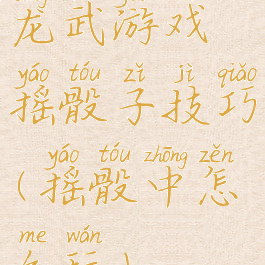 龙武游戏
yáo tóu zǐ jì qiǎo
摇骰子技巧
yáo tóu zhōng zěn
(摇骰中怎
me wán